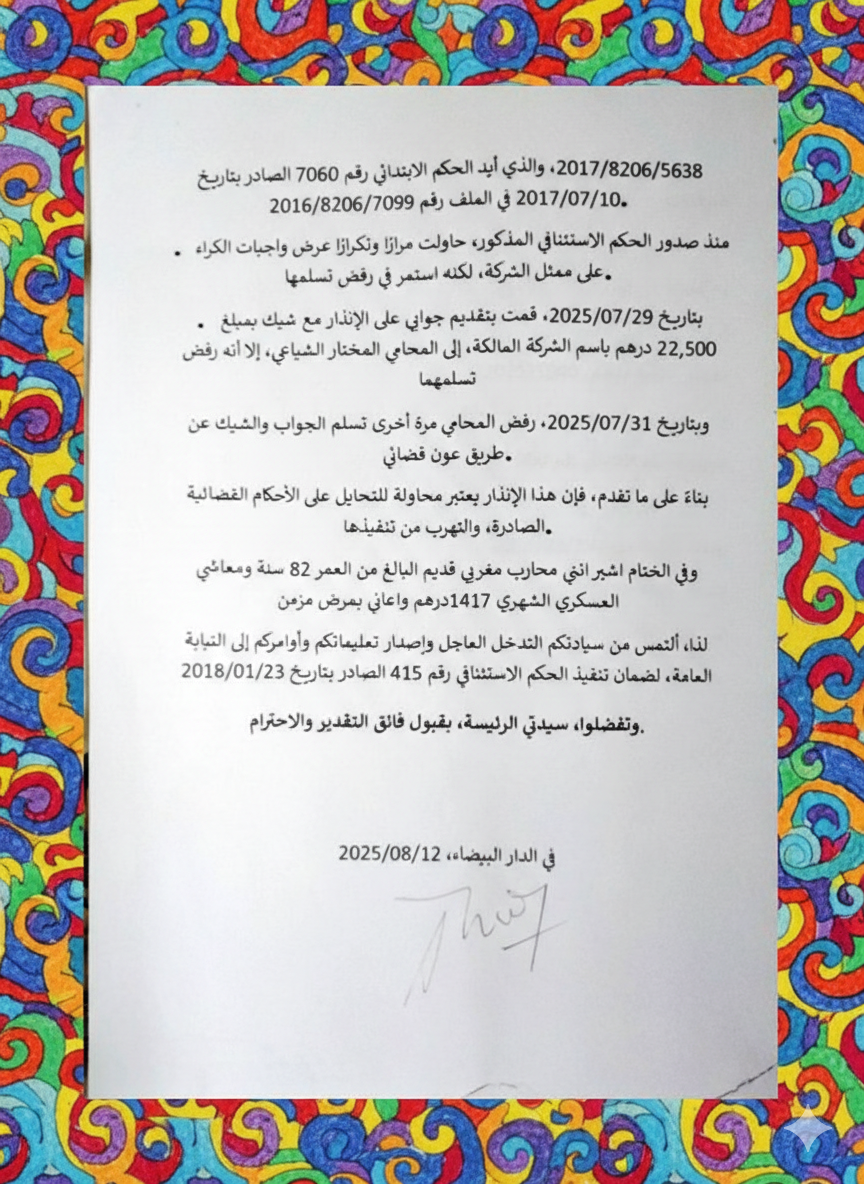 2017/8206/5638، والذي أيد الحكم الابتدائي رقم 7060 الصادر بتاريخ
2017/07/10 في الملف رقم 2016/8206/7099.
منذ صدور الحكم الاستئنافي المذكور، حاولت مرارًا وتكرارًا عرض واجبات الكراء •
على ممثل الشركة، لكنه استمر في رفض تسلمها.
بتاريخ 2025/07/29، قمت بتقديم جوابي على الإنذار مع شيك بمبلغ •
22,500 درهم باسم الشركة المالكة، إلى المحامي المختار الشياعي، إلا أنه رفض
تسلمهما
وبتاريخ 2025/07/31، رفض المحامي مرة أخرى تسلم الجواب والشيك عن
طريق عون قضائي.
بناءً على ما تقدم، فإن هذا الإنذار يعتبر محاولة للتحايل على الأحكام القضائية
الصادرة، والتهرب من تنفيذها.
وفي الختام اشير انني محارب مغربي قديم البالغ من العمر 82 سنة ومعاشي
العسكري الشهري 1417درهم واعاني بمرض مزمن
لذا، ألتمس من سيادتكم التدخل العاجل وإصدار تعليماتكم وأوامركم إلى النيابة
العامة، لضمان تنفيذ الحكم الاستئنافي رقم 415 الصادر بتاريخ 2018/01/23
وتفضلوا، سيدتي الرئيسة، بقبول فائق التقدير والاحترام.
في الدار البيضاء، 2025/08/12